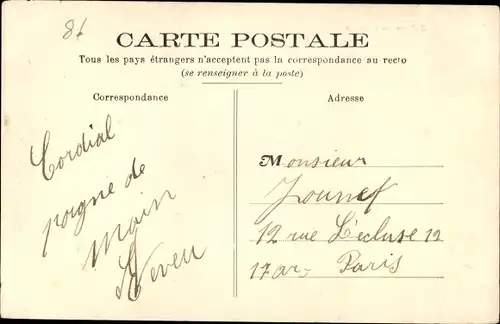 81
CARTE POSTALE
Tous les pays étrangers n'acceptent pas la correspondance au recto
(se renseigner à la poste)
Correspondance
Adresse
Cordial
poigne de
main
Monsieur
12 rue L'ecluse 12
17ar- Paris